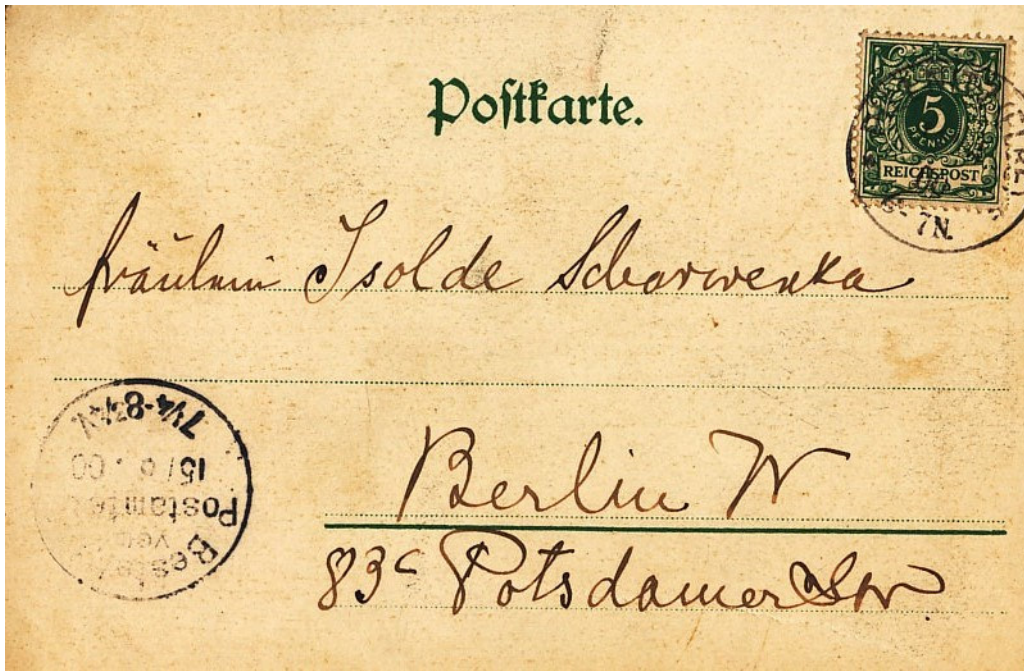 Postkarte.
5
PFENNIG
REICHSPOST
7N.
Fräulein Isolde Scharwenka
Berlin W
83c Potsdamer Str
Bestellt
vom
Postamte
15/6.00
7¼-8¾V.